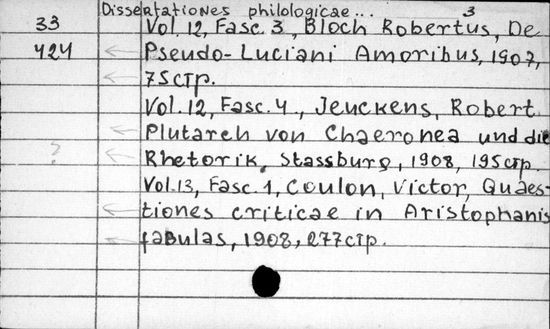 Dissertationes philologicae... 3
33 Vol. 12, Fasc. 3, Bloch Robertus, De
424 Pseudo-Luciani Amoribus, 1907,
75стр.
Vol. 12, Fasc. 4., Jeuckens, Robert
Plutarch von Chaeronea und die
? Rhetorik, Stassburg, 1908, 195стр.
Vol. 13, Fasc. 1, Coulon, Victor, Quaes-
tiones criticae in Aristophanis
fabulas, 1908, 277стр.